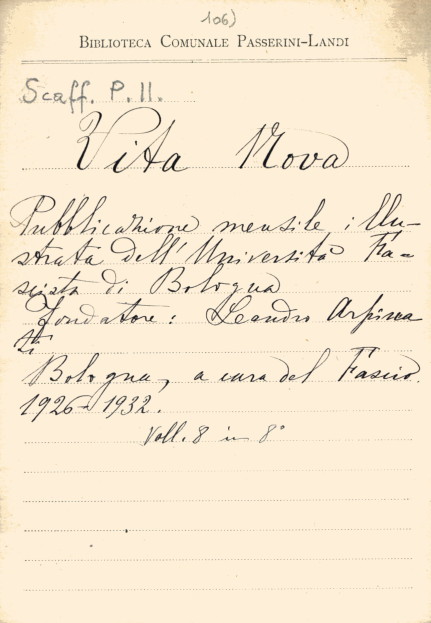 106)
BIBLIOTECA COMUNALE PASSERINI-LANDI
Scaff. P. II.
Vita Nova
Pubblicazione mensile illu-
strata dell'Università Fa-
scista di Bologna
Fondatore: Leandro Arpina
ti
Bologna, a cura del Fascio.
1926-1932.
Voll. 8 in 8°